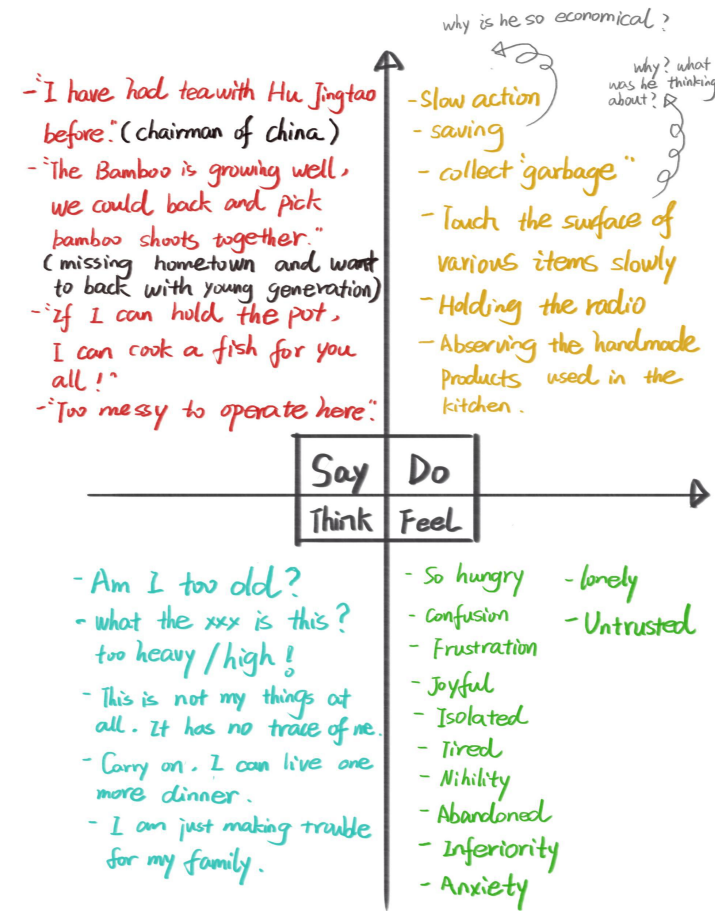 why is he so economical?
why? what
was he thinking
about?
-"I have had tea with Hu Jingtao
before." (chairman of china)
-"The Bamboo is growing well,
we could back and pick
bamboo shoots together."
(missing hometown and want
to back with young generation)
-"If I can hold the pot,
I can cook a fish for you
all!"
-"Too messy to operate here".
-Slow action
- saving
- collect "garbage"
- Touch the surface of
various items slowly
- Holding the radio
- Abserving the handmade
Products used in the
kitchen.
Say
Do
Think
Feel
- Am I too old?
- what the xxx is this?
too heavy/high!
- This is not my things at
all. It has no trace of me.
- Carry on. I can live one
more dinner.
- I am just making trouble
for my family.
- So hungry
- Confusion
- Frustration
- Joyful
- Isolated
- Tired
- Nihility
- Abandoned
- Inferiority
- Anxiety
- lonely
- Untrusted